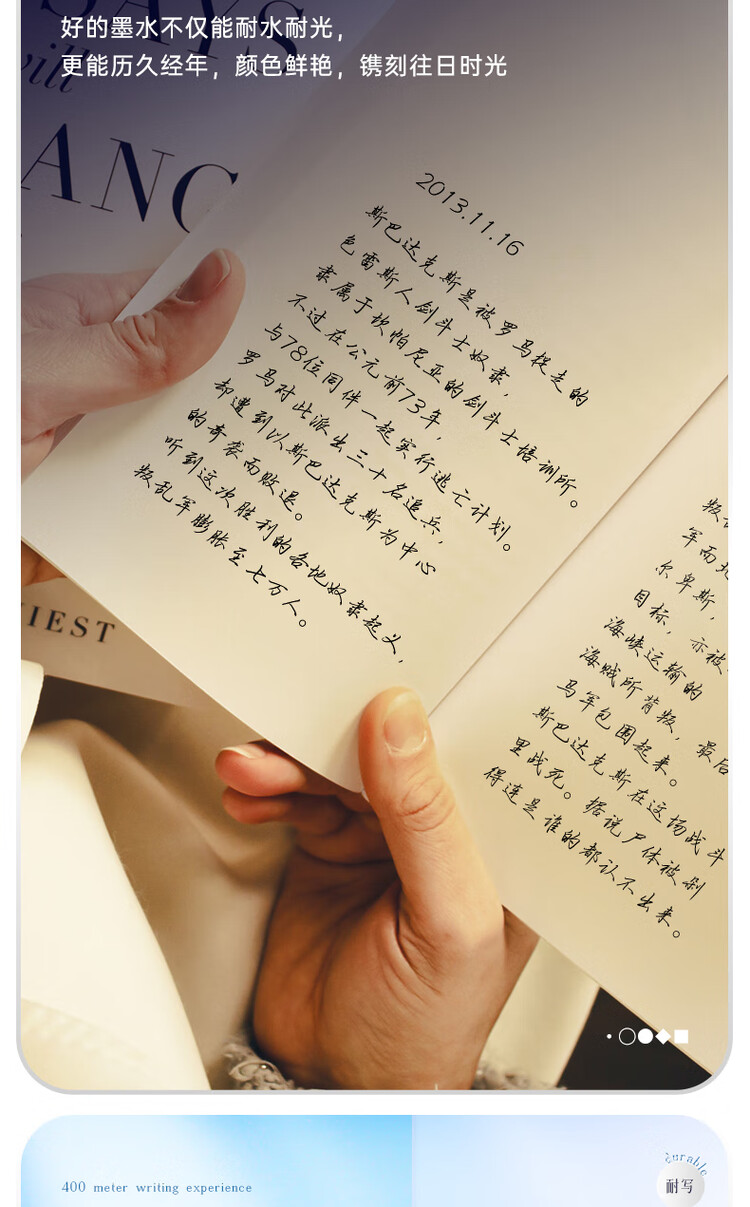 好的墨水不仅能耐水耐光，
更能历久经年，颜色鲜艳，镌刻往日时光
will
ANC
IEST
2013.11.16
斯巴达克斯是被罗马捉走的
色雷斯人剑斗士奴隶，
隶属于坎帕尼亚的剑斗士培训所。
不过在公元前73年，
与78位同伴一起实行逃亡计划。
罗马对此派出三十名追兵，
却遭到以斯巴达克斯为中心
的奇袭而败退。
听到这次胜利的各地奴隶起义，
叛乱军膨胀至七万人。
军而北
尔卑斯，
目标，亦被
海峡运输的
海贼所背叛，最后
马军包围起来。
斯巴达克斯在这场战斗
里战死。据说尸体被剁
得连是谁的都认不出来。
400 meter writing experience
durable
耐写